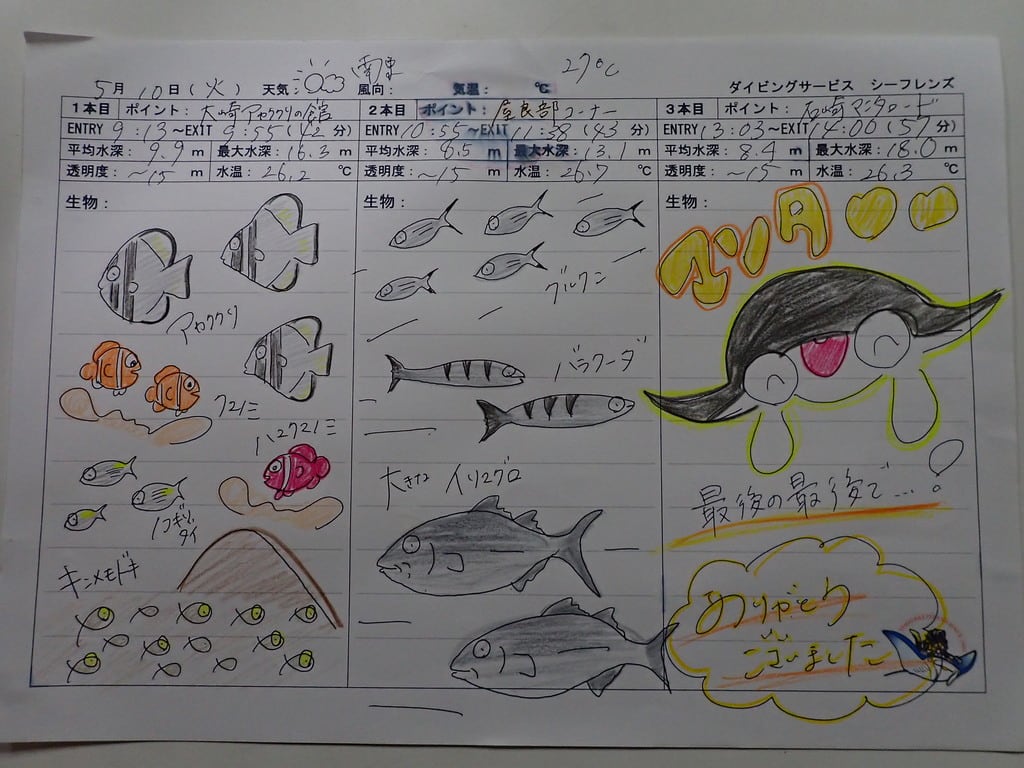 5月10日(火) 天気: 風向: 南東 気温: 27℃ ℃ ダイビングサービス シーフレンズ
1本目 ポイント: 大崎アカククリの館
ENTRY 9:13~EXIT 9:55(42分)
平均水深: 9.9 m 最大水深: 16.3 m
透明度: ~15 m 水温: 26.2 ℃
生物:
アカククリ
クマノミ
ハマクマノミ
ノコギリダイ
キンメモドキ
2本目 ポイント: 屋良部コーナー
ENTRY 10:55~EXIT 11:38(43分)
平均水深: 8.5 m 最大水深: 13.1 m
透明度: ~15 m 水温: 26.7 ℃
生物:
グルクン
バラクーダ
大きな イソマグロ
3本目 ポイント: 石崎マンタロード
ENTRY 13:03~EXIT 14:00(57分)
平均水深: 8.4 m 最大水深: 18.0 m
透明度: ~15 m 水温: 26.3 ℃
生物:
マンタ
最後の最後で…!
ありがとう
ございました